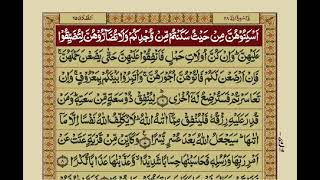 الطلاق ٦٥
قد سمع الله ٢٨
اَسْكِنُوْهُنَّ مِنْ حَيْثُ سَكَنْتُمْ مِّنْ وُّجْدِكُمْ وَلَا تُضَآرُّوْهُنَّ لِتُضَيِّقُوْا
عَلَيْهِنَّ ؕ وَاِنْ كُنَّ اُولَاتِ حَمْلٍ فَاَنْفِقُوْا عَلَيْهِنَّ حَتّٰى يَضَعْنَ حَمْلَهُنَّ ۚ
فَاِنْ اَرْضَعْنَ لَكُمْ فَاٰتُوْهُنَّ اُجُوْرَهُنَّ ۚ وَاْتَمِرُوْا بَيْنَكُمْ بِمَعْرُوْفٍ ۚ وَاِنْ
تَعَاسَرْتُمْ فَسَتُرْضِعُ لَهٗۤ اُخْرٰى ؕ لِيُنْفِقْ ذُوْ سَعَةٍ مِّنْ سَعَتِهٖ ؕ وَمَنْ
قُدِرَ عَلَيْهِ رِزْقُهٗ فَلْيُنْفِقْ مِمَّاۤ اٰتٰىهُ اللّٰهُ ؕ لَا يُكَلِّفُ اللّٰهُ نَفْسًا اِلَّا مَاۤ
اٰتٰىهَا ؕ سَيَجْعَلُ اللّٰهُ بَعْدَ عُسْرٍ يُّسْرًا وَكَاَيِّنْ مِّنْ قَرْيَةٍ عَتَتْ عَنْ
اَمْرِ رَبِّهَا وَرُسُلِهٖ فَحَاسَبْنٰهَا حِسَابًا شَدِيْدًا وَّعَذَّبْنٰهَا عَذَابًا نُّكْرًا